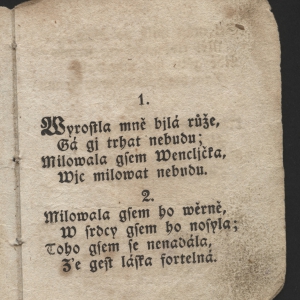 1.
Wyrostla mně bjlá růže,
Gá gi trhat nebudu;
Milowala gsem Wencljčka,
Wjc milowat nebudu.
2.
Milowala gsem ho wěrně,
W srdcy gsem ho nosyla;
Toho gsem se nenadála,
Z'e gest láska fortelná.